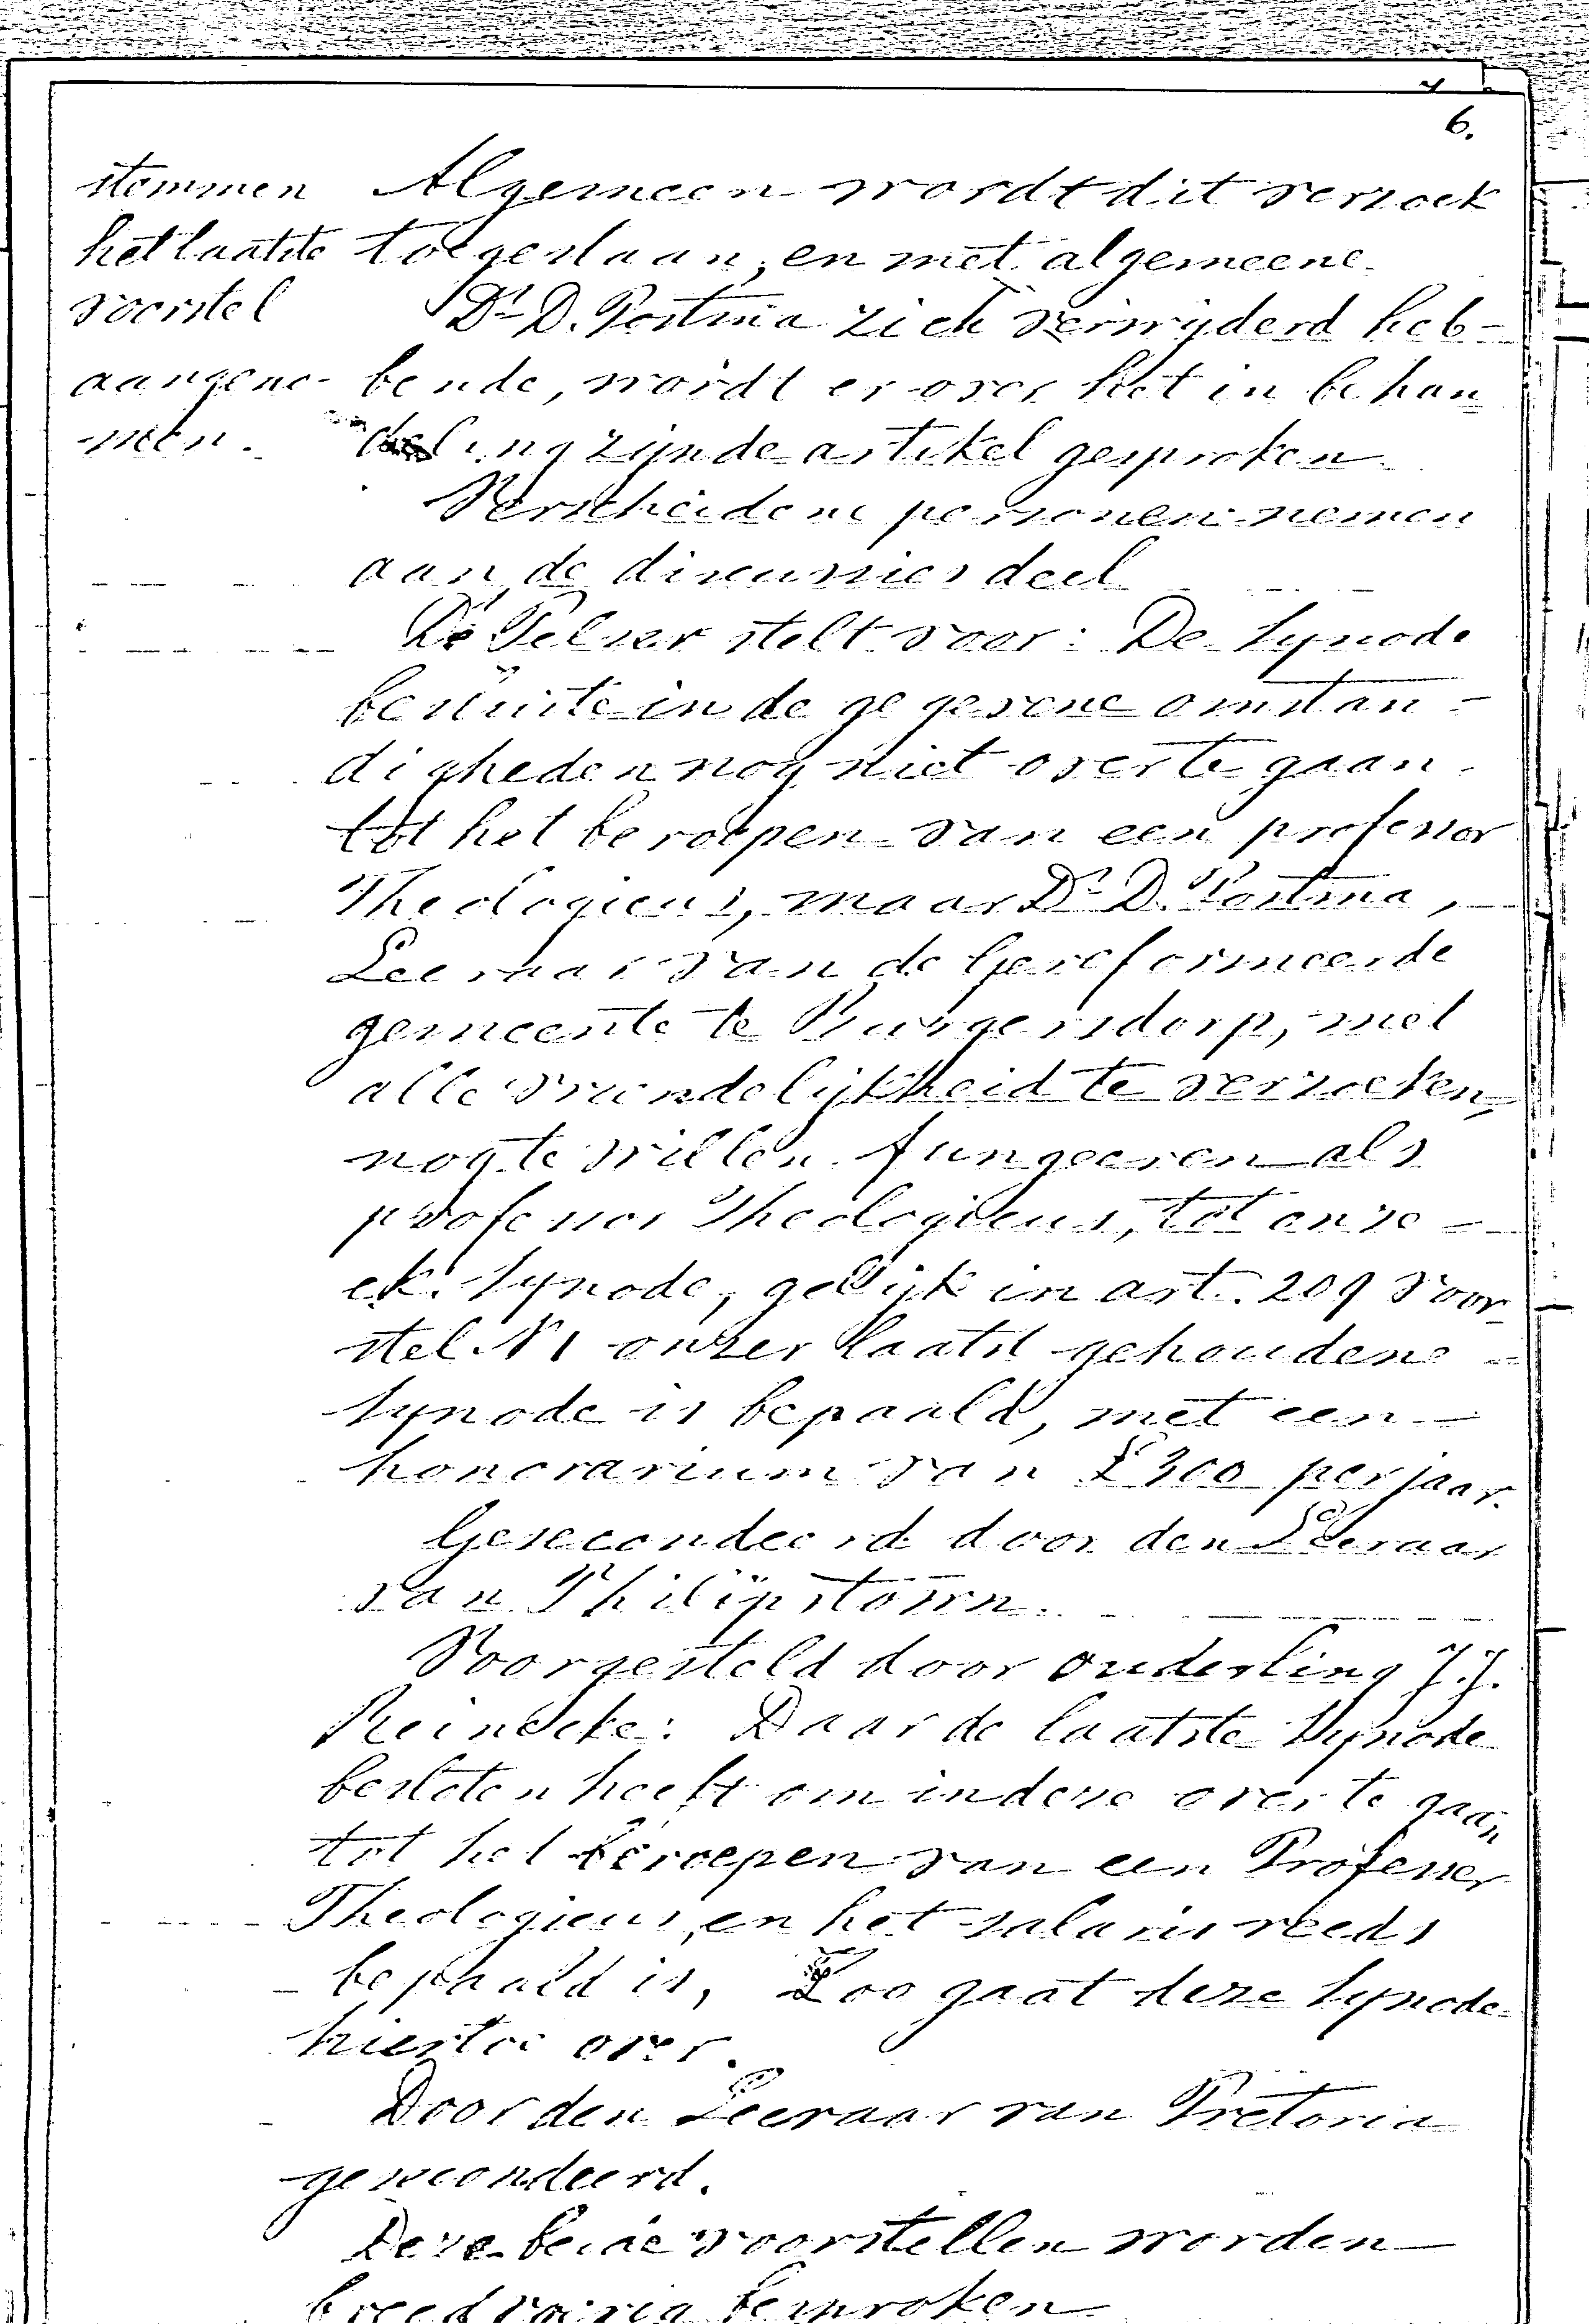 6.
stemmen
het laatste
voorstel
aangeno-
men.
Algemeen wordt dit verzoek
toegestaan, en met algemeene
Ds D. Postma zich verwijderd heb-
bende, wordt er over het in behan
deling zijnde artikel gesproken.
Verscheidene personen nemen
aan de discussies deel
Ds Pelser stelt voor: De Synode
besluite in de gegevene omstan-
digheden nog niet over te gaan
tot het beroepen van een professor
Theologicus, maar Ds D. Postma,
Leeraar van de Gereformeerde
gemeente te Burgersdorp, met
alle vriendelijkheid te verzoeken,
nog te willen fungeeren als
professor Theologicus, tot onze
ek. Synode, gelijk in art. 209 voor
stel N1 onzer laatst gehoudene
Synode is bepaald, met een
honorarium van £300 per jaar.
Gesecondeerd door den Leeraar
van Philipstown.
Voorgesteld door ouderling J.J.
Reinecke: Daar de laatste Synode
besloten heeft om in deze over te gaan
tot het beroepen van een Professor
Theologicus, en het salaris reeds
bepaald is, Zoo gaat deze Synode
hiertoe over.
Door den Leeraar van Pretoria
gesecondeerd.
Deze beide voorstellen worden
breedvoerig besproken